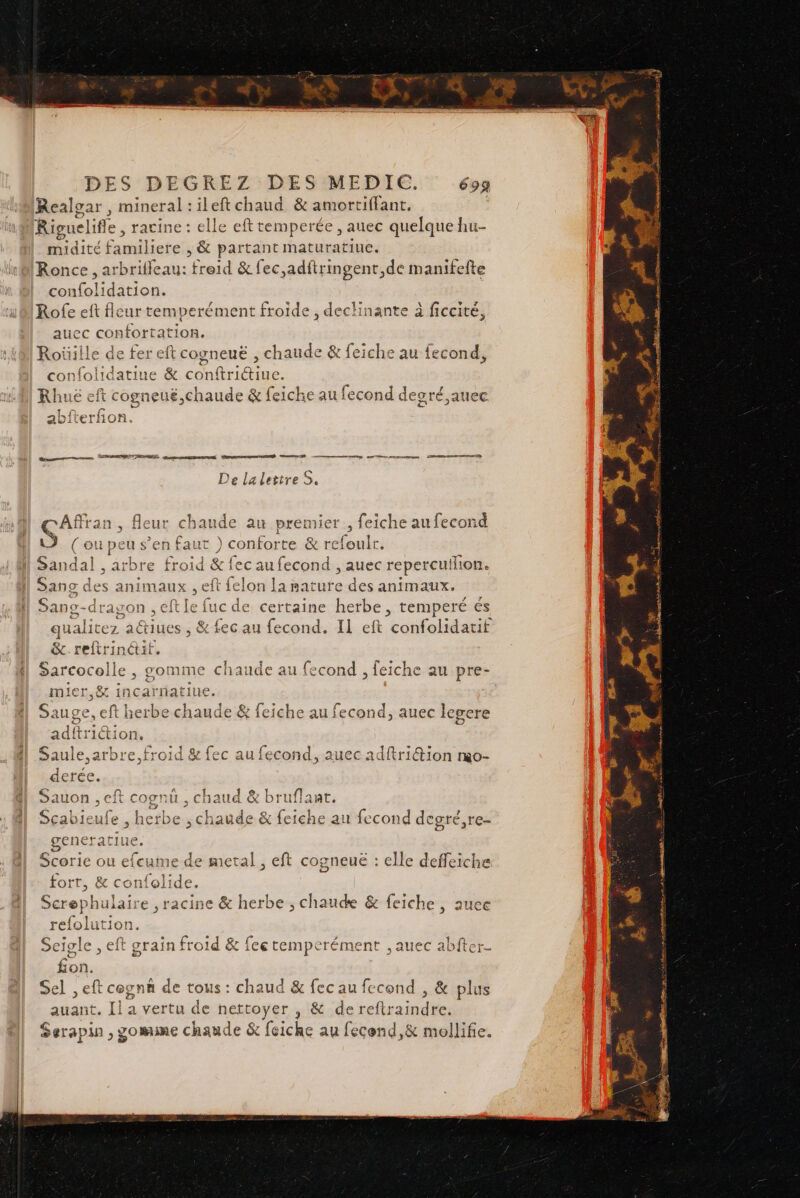 DES DEGREZ DES MEDIC. 699
Realgar, mineral : il eſt chaud & amortiſſant.
Rigueliſſe, racine : elle eſt temperée, auec quelque hu-
midité familiere, & partant maturatiue.
Ronce, arbriſſeau: froid & ſec,adſtringent,de manifeſte
conſolidation.
Roſe eſt fleur temperément froide, declinante à ſiccité,
auec confortation.
Roüille de fer eſt cogneuë, chaude & ſeiche au ſecond,
conſolidatiue & conſtrictiue.
Rhuë eſt cogneuë,chaude & ſeiche au ſecond degré,auec
abſterſion.
De la lettre S.
SAffran, fleur chaude au premier, ſeiche au ſecond
(ou peu s'en faut ) conforte & reſoult.
Sandal, arbre froid & ſec au ſecond, auec repercuſſion.
Sang des animaux, eſt ſelon la nature des animaux.
Sang-dragon, eſt le ſuc de certaine herbe, temperé és
qualitez actiues, & ſec au ſecond. Il eſt conſolidatif
& reſtrinctif.
Sarcocolle, gomme chaude au ſecond, ſeiche au pre-
mier,& incarnatiue.
Sauge, eſt herbe chaude & ſeiche au ſecond, auec legere
adſtriction.
Saule,arbre,froid & ſec au ſecond, auec adſtriction mo-
derée.
Sauon, eſt cognû, chaud & bruſlant.
Scabieuſe, herbe, chaude & ſeiche au ſecond degré,re-
generatiue.
Scorie ou eſcume de metal, eſt cogneuë : elle deſſeiche
fort, & conſolide.
Screphulaire, racine & herbe, chaude & ſeiche, auec
reſolution.
Seigle, eſt grain froid & ſec temperément, auec abſter-
ſion.
Sel, eſt cognû de tous : chaud & ſec au ſecond, & plus
auant. Il a vertu de nettoyer, & de reſtraindre.
Serapin, gomme chaude & ſeiche au ſecond,& mollifie.